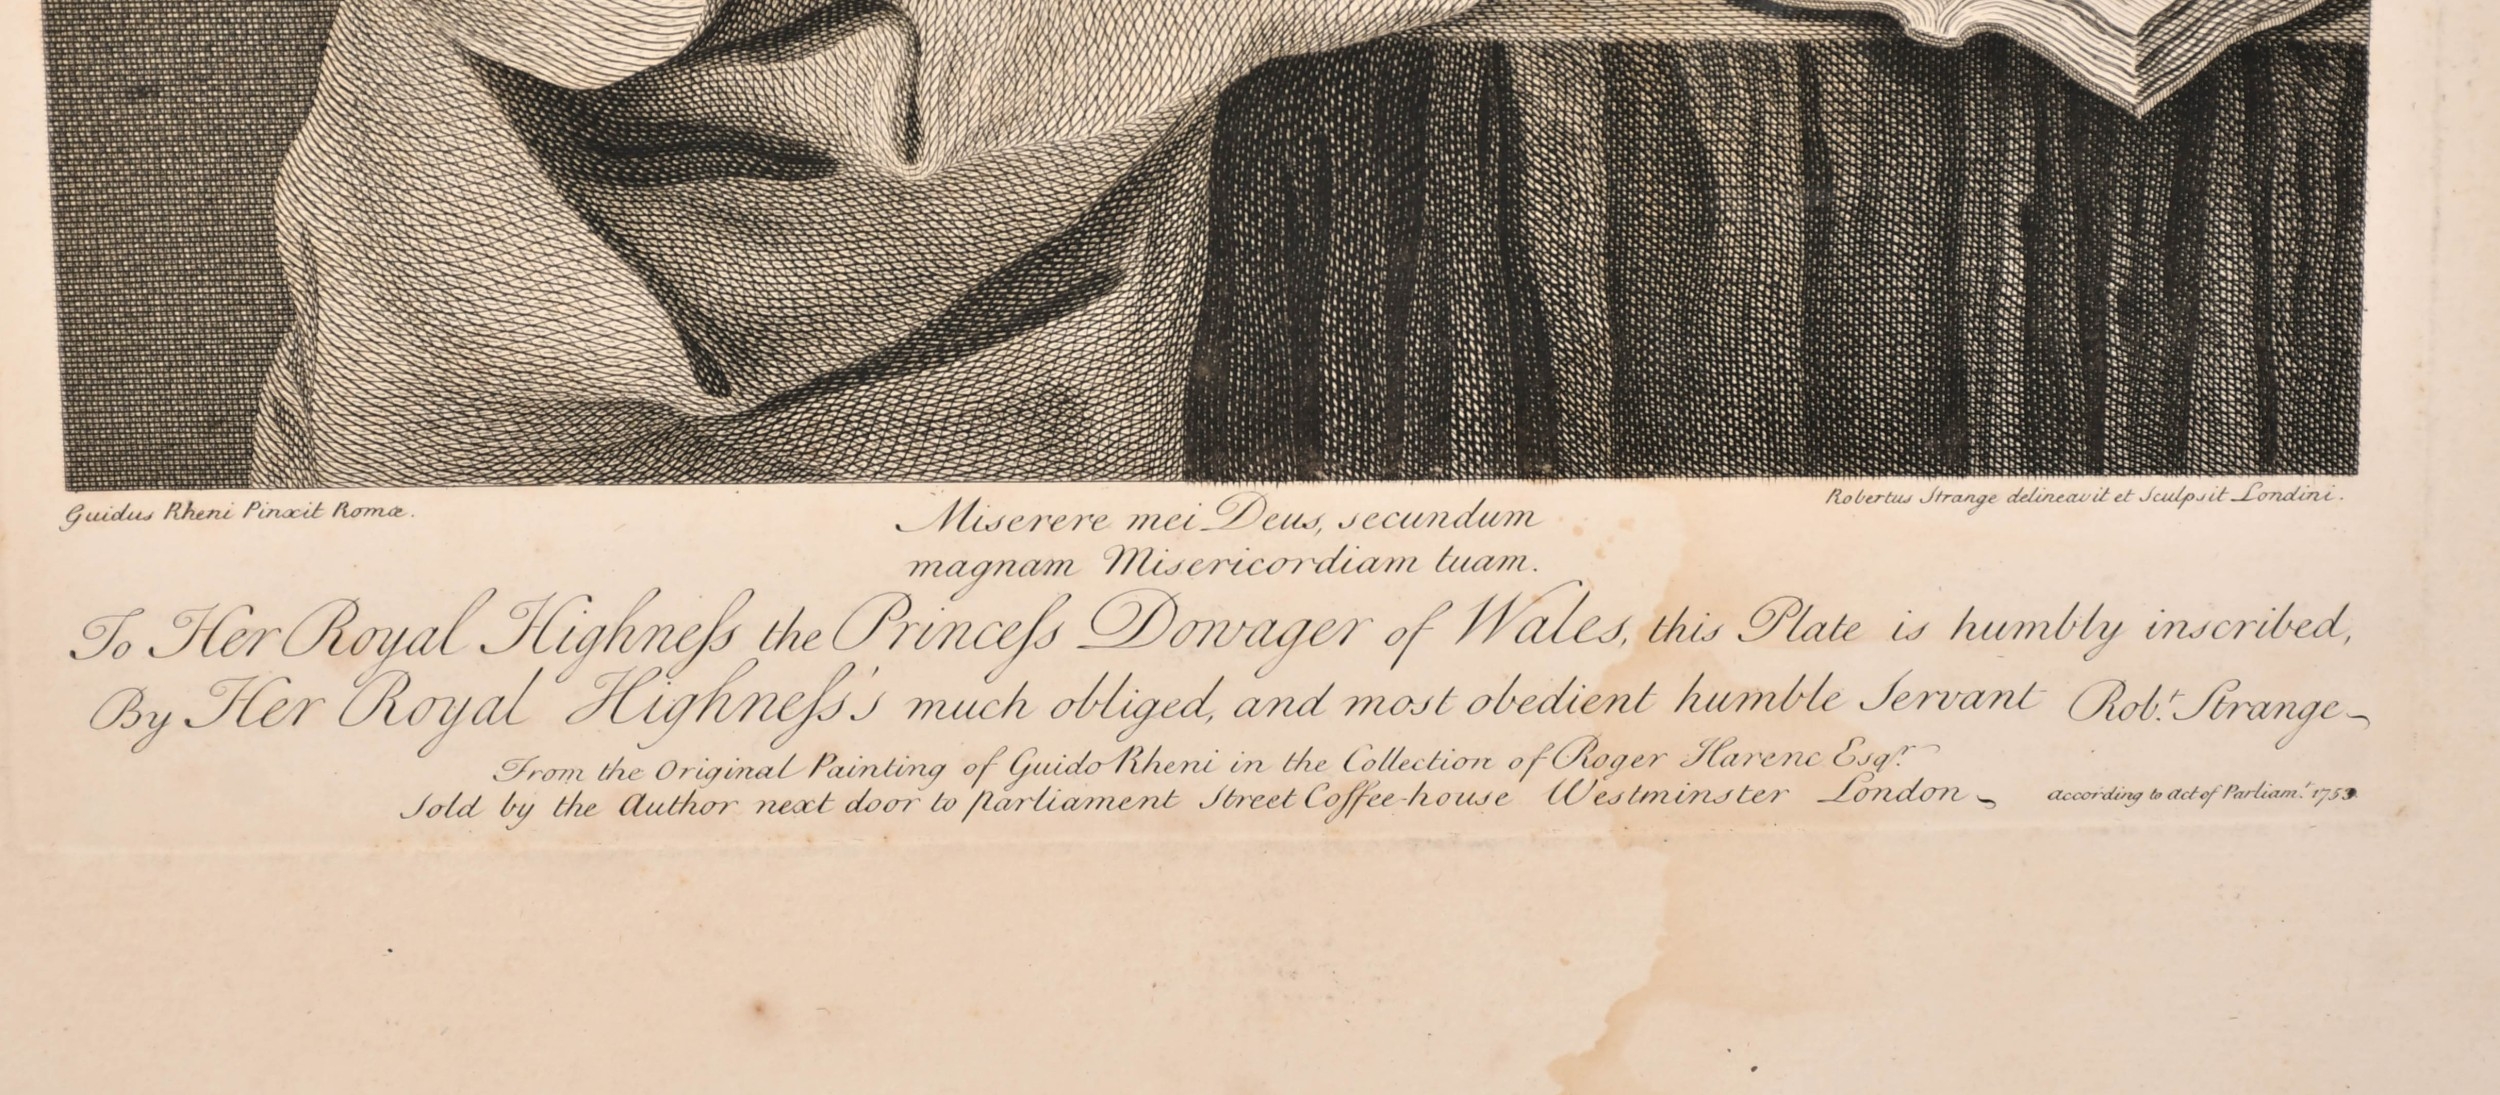 Guidus Rheni Pinxit Romæ.
Miserere mei Deus, secundum
magnam Misericordiam tuam.
Robertus Strange delineavit et Sculpsit Londini.
To Her Royal Highneſs the Princeſs Dowager of Wales, this Plate is humbly inscribed,
By Her Royal Highneſs's much obliged, and most obedient humble Servant Rob.t Strange
From the Original Painting of Guido Rheni in the Collection of Roger Harenc Esqr.
Sold by the Author next door to parliament Street Coffee-house Westminster London according to act of Parliam.t 1753